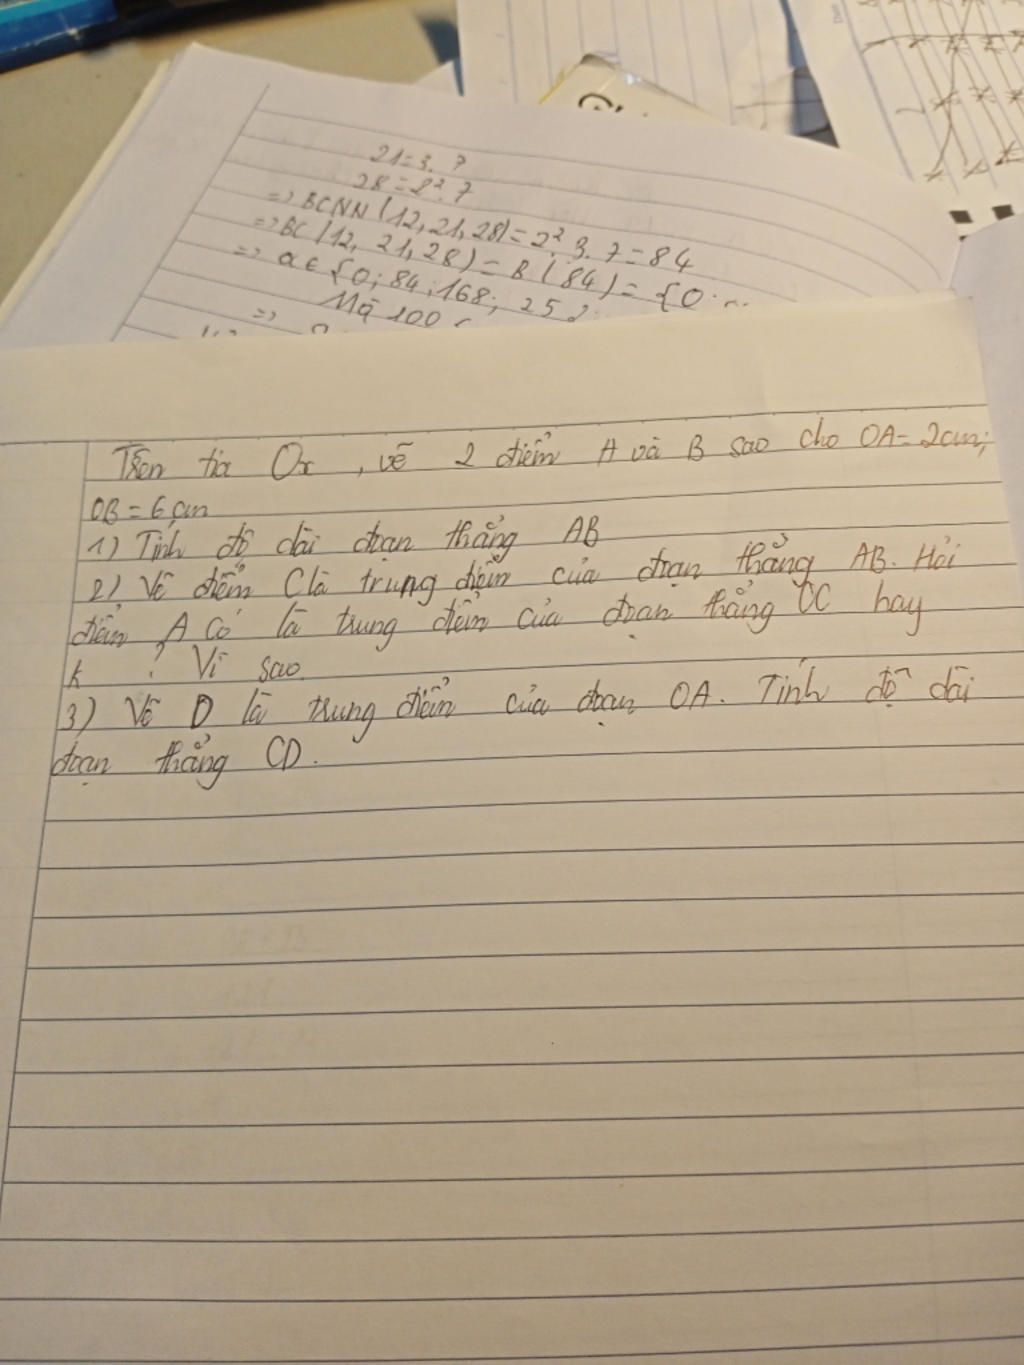 21=3.7
28=2².7
=> BCNN(12,21,28)=2².3.7=84
=> BC(12, 21,28)=B(84)={0;...
=> a∈{0;84;168; 252;
Mà 100
=>
Trên tia Ox, vẽ 2 điểm A và B sao cho OA=2cm;
OB=6cm
1) Tính độ dài đoạn thẳng AB
2) Vẽ điểm C là trung điểm của đoạn thẳng AB. Hỏi
điểm A có là trung điểm của đoạn thẳng OC hay
k ? Vì sao
3) Vẽ D là trung điểm của đoạn OA. Tính độ dài
đoạn thẳng CD.